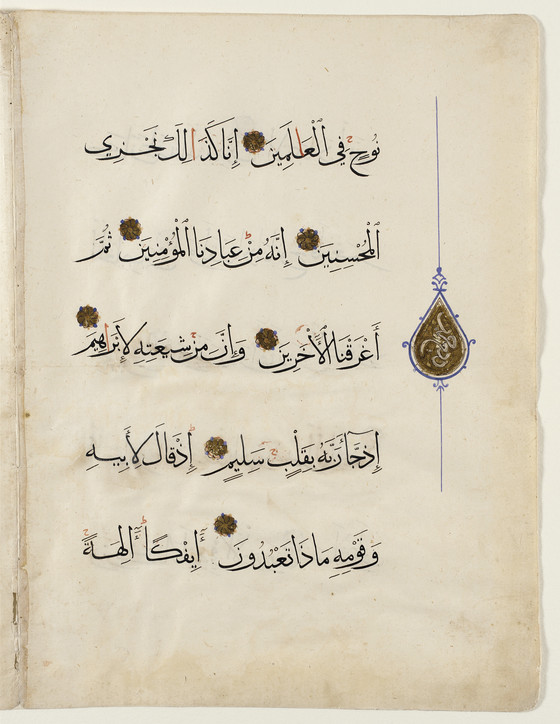 نُوحٍ فِي الْعَالَمِينَ إِنَّا كَذَالِكَ نَجْزِي
الْمُحْسِنِينَ إِنَّهُ مِنْ عِبَادِنَا الْمُؤْمِنِينَ ثُمَّ
أَغْرَقْنَا الْأَخَرِينَ وَإِنَّ مِنْ شِيعَتِهِ لَإِبْرَاهِيمَ
إِذْ جَآءَ رَبَّهُ بِقَلْبٍ سَلِيمٍ إِذْ قَالَ لِأَبِيهِ
وَقَوْمِهِ مَاذَا تَعْبُدُونَ أَئِفْكًا آلِهَةً